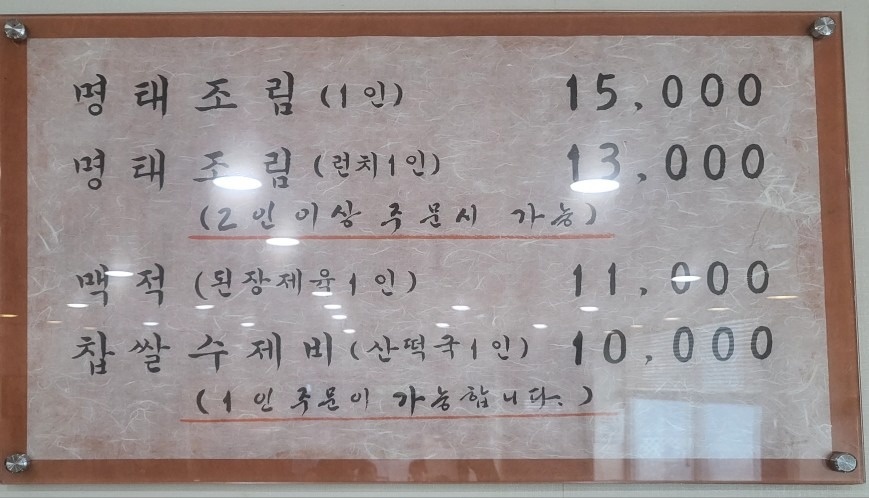 명태조림 (1인) 15,000
명태조림 (런치1인) 13,000
(2인이상 주문시 가능)
맥적 (된장제육1인) 11,000
찹쌀수제비 (산떡국1인) 10,000
(1인 주문이 가능합니다.)